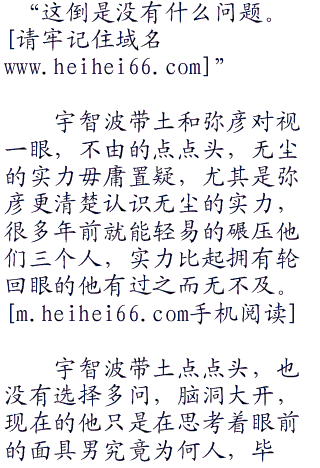 “这倒是没有什么问题。
[请牢记住域名
www.heihei66.com]”
宇智波带土和弥彦对视
一眼，不由的点点头，无尘
的实力毋庸置疑，尤其是弥
彦更清楚认识无尘的实力，
很多年前就能轻易的碾压他
们三个人，实力比起拥有轮
回眼的他有过之而无不及。
[m.heihei66.com手机阅读]
宇智波带土点点头，也
没有选择多问，脑洞大开，
现在的他只是在思考着眼前
的面具男究竟为何人，毕